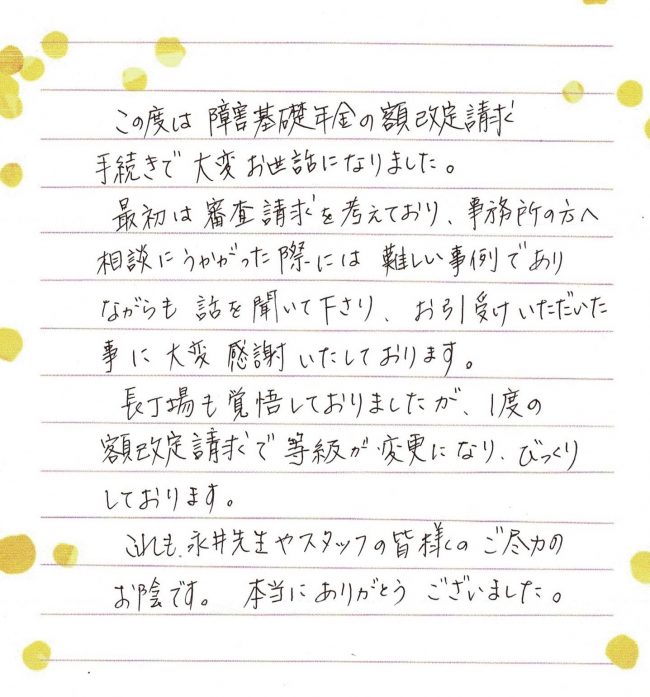 この度は 障害基礎年金の額改定請求
手続きで 大変お世話になりました。
最初は審査請求を考えており、事務所の方へ
相談にうかがった際には 難しい事例であり
ながらも 話を聞いて下さり、お引受けいただいた
事に 大変 感謝いたしております。
長丁場も覚悟しておりましたが、1度の
額改定請求で等級が変更になり、びっくり
しております。
これも、永井先生やスタッフの皆様のご尽力の
お陰です。 本当にありがとう ございました。